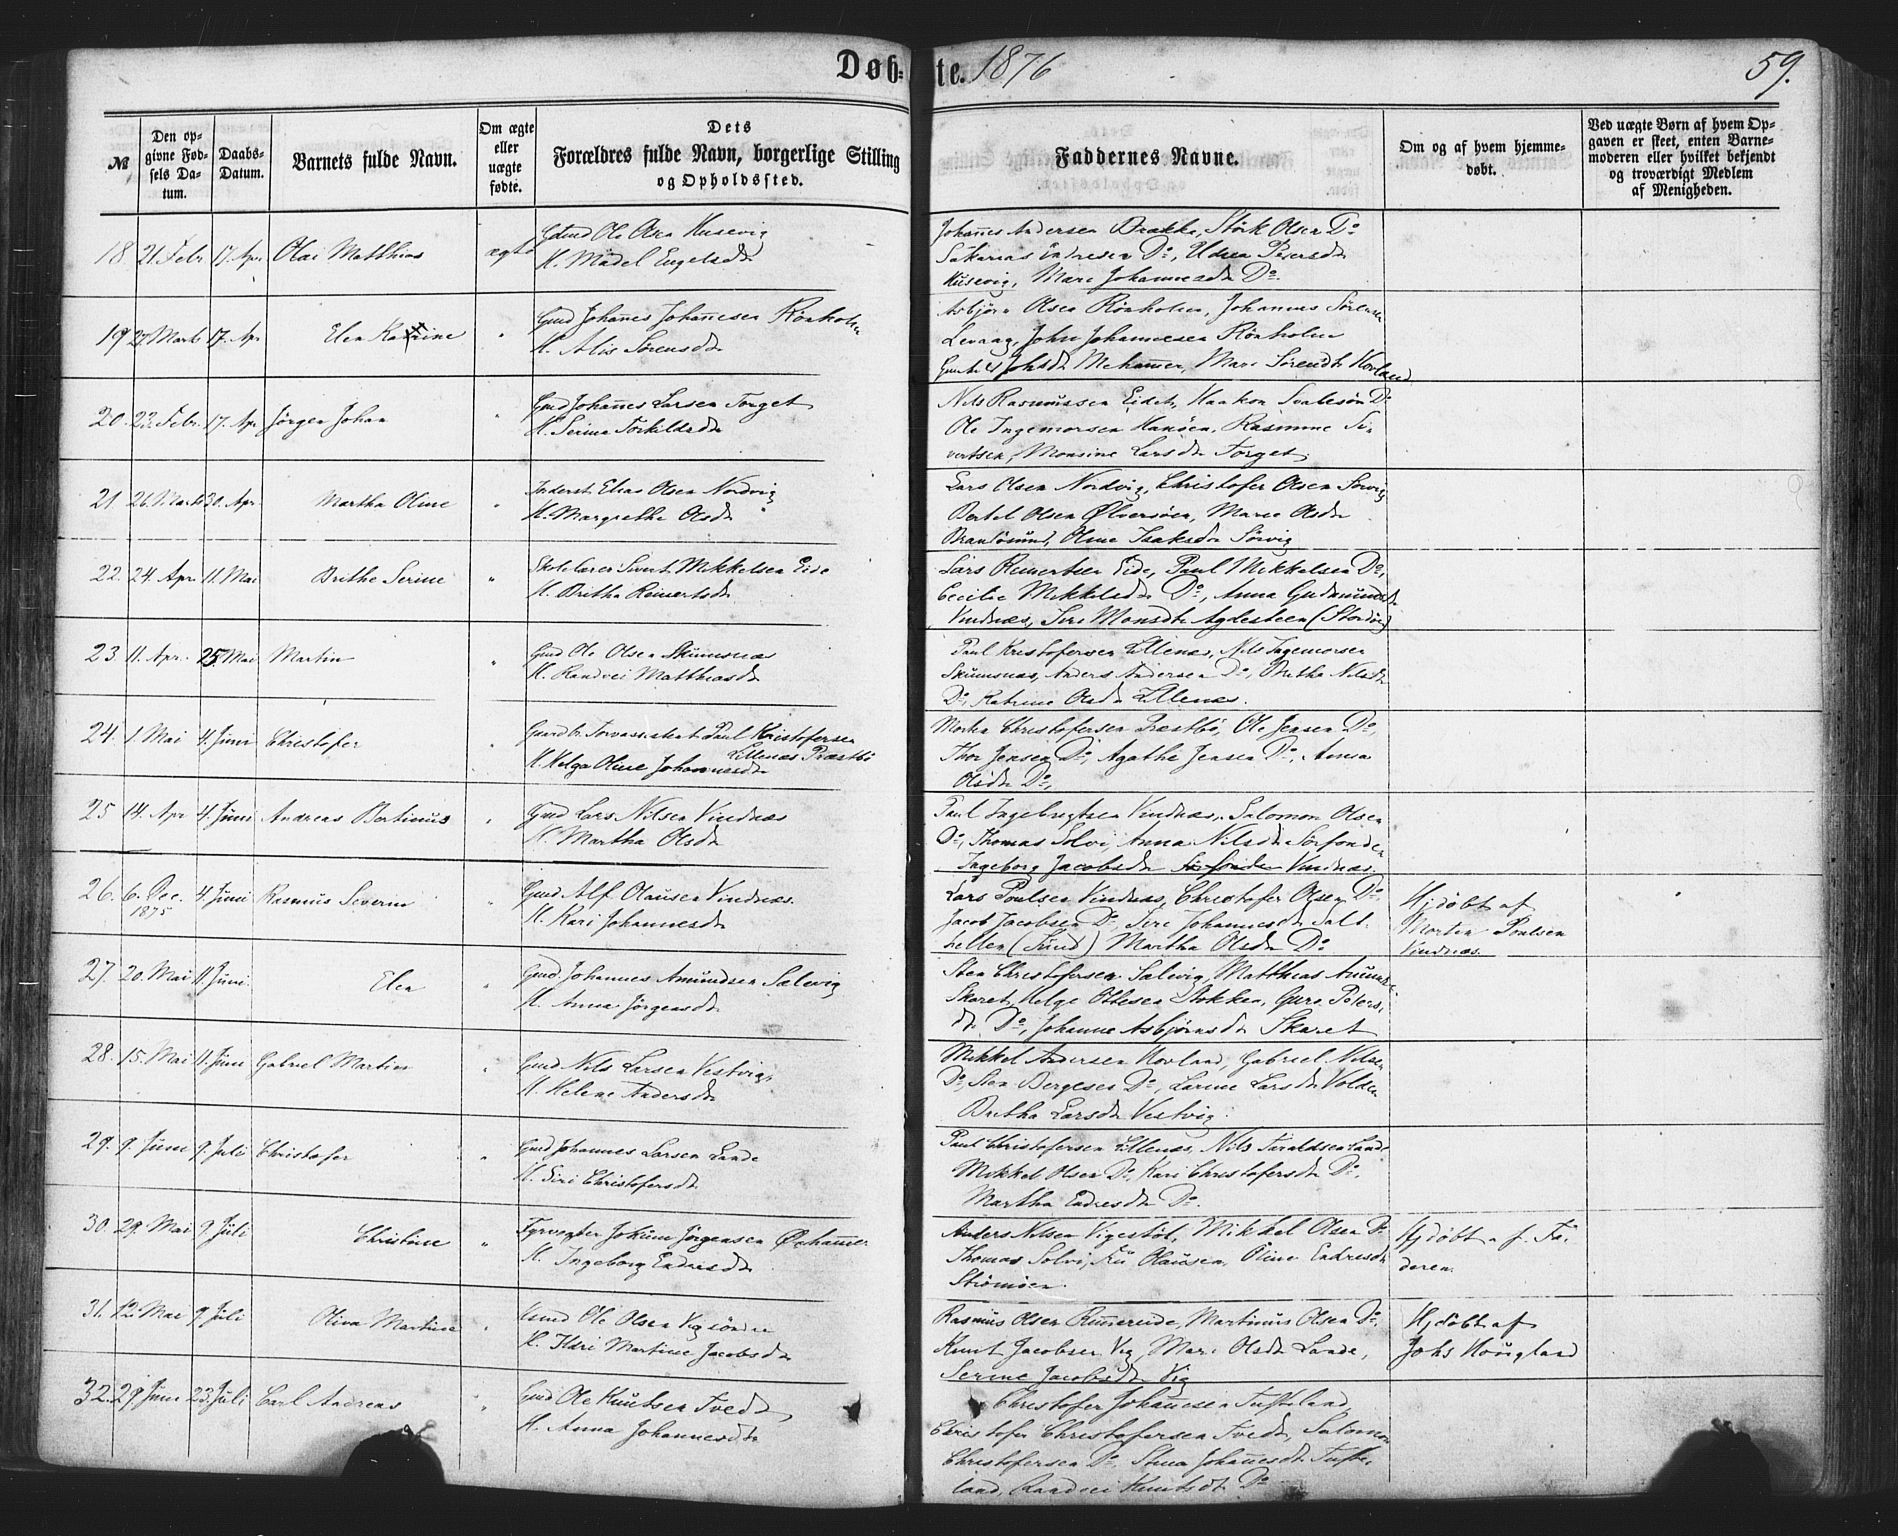 Døb-te. 1876
59.
№
Den opgivne Fødsels Datum.
Daabs-Datum.
Barnets fulde Navn.
Om ægte eller uægte fødte.
Dets Forældres fulde Navn, borgerlige Stilling og Opholdssted.
Faddernes Navne.
Om og af hvem hjemmedøbt.
Ved uægte Børn af hvem Opgaven er skeet, enten Barnemoderen eller hvilket bekjendt og troværdigt Medlem af Menigheden.
18. 21. Febr. 17. Apr. Olai Matthias ægte Gmd Ole Olsen Husevig
H. Madel Engelsdtr
Johannes Andersen Brakke, Störk Olsen Do
Sakarias Endresen Do, Udsea Pedersdtr
Husevig, Mari Johannesdtr Do.
19 27. Marts 17. Apr Elen Katrine " Gmd Johannes Johannesen Rönholm
H. Alis Sörensdtr
Asbjörn Olsen Rönholm, Johannes Sörensen
Levaag, John Johannesen Rönholm
Johsdtr Mehammer, Mari Sörensdtr Hovland
20. 22. Febr. 17. Apr Jörgen Johan " Gmd Johannes Larsen Torget
H. Serina Torkildsdtr
Nils Rasmussen Eidet, Haakon Do
Ole Ingemorsen Hanöen, Rasmine Si-
vertsen, Monsine Larsdtr Torget
21 26. Marts 30. Apr Martha Oline " Inderst Elias Olsen Nordvig
H. Margrethe Olsdtr
Lars Olsen Nordvig, Christofer Olsen Sörvig
Bertel Olsen Ölversöen, Marie Olsdtr
Brandösund, Oline Isaksdtr Sörvig
22. 24. Apr. 11. Mai Brithe Serine " Skolelærer Sivert Mikkelsen Eide
H. Britha Reinertsdtr
Lars Reinertsen Eide, Paul Mikkelsen Do,
Cecilie Mikkelsdtr Do, Anna Gudmundsdtr
Vindnæs, Siri Monsdtr Agdesteen (Stordöen)
23. 11. Apr. 25. Mai Martin " Gmd Ole Olsen Skumsnæs
H. Randvei Matthiasdtr
Paul Kristofersen Lillenæs, Nils Ingemorsen
Skumsnæs, Anders Andersen Do, Britha Nilsdtr
Do, Katrine Olsdtr Lillenæs.
24. 1. Mai 4. Juni Christofer " Gmd Paul Kristofersen
Lillenæs Præstbö
H. Helga Oline Johannesdtr
Morten Christofersen Præstbö, Ole Jensen Do,
Thor Jensen Do, Agathe Jensen Do, Anna
Olsdtr Do,
25 14. Apr 4. Juni Andreas Bertinus " Gmd Lars Nilsen Vindnæs
H. Martha Olsdtr
Paul Ingebrigtsen Vindnæs, Salomon Olsen
Do, Thomas Solvi, Anna Nilsdtr Sörfonden
Ingeborg Jacobsdtr Sörfonden Vindnæs.
26. 6. Dec. 1875 4. Juni Rasmus Severin " Gmd Alf Olausen Vindnæs.
H. Kari Johannesdtr
Lars Poulsen Vindnæs, Christofer Olsen Do.
Jacob Jacobsen Do, Siri Johannesdtr Salt-
hellen (Sund) Martha Olsdtr Do
Hjdöbt af
Morten Poulsen
Vindnæs.
27. 20. Mai 11. Juni Elen " Gmd Johannes Amundsen Sælevig
H. Anna Jörgensdtr
Sten Christofersen Sælevig, Matthias Amunds.
Skaret, Helge Ottesen Stokken, Guro Peders-
dtr Do, Johanne Asbjörnsdtr Skaret
28. 15. Mai 11. Juni Gabriel Martin " Gmd Nils Larsen Vestvig,
H. Helene Andersdtr
Mikkel Andersen Hovland, Gabriel Nilsen
Do, Sten Børgesen Do, Larine Larsdtr Volden
Britha Larsdtr Vestvig.
29. 9. Juni 9. Juli Christofer " Gmd Johannes Larsen Lande
H. Siri Christofersdtr
Paul Christofersen Lillenæs, Nils Taraldsen Lande
Mikkel Olsen Do, Kari Christofersdtr Do,
Martha Endresdtr Do.
30. 29. Mai 9 Juli Christine " Fyrvogter Jokum Jörgensen Öxhammer
H. Ingeborg Endresdtr
Anders Nilsen Vigestöl, Mikkel Olsen Do
Thomas Solvi, Fru Olausen, Oline Endresdtr
Strömöen.
Hjdöbt af Fa-
deren.
31. 12. Mai 9 Juli Oliva Martine " Gmd Ole Olsen Vigsönden
H. Ildri Martine Jacobsdtr
Rasmus Olsen Rimmereide, Martinus Olsen Do.
Knut Jacobsen Vig, Mari Olsdtr Lande,
Serine Jacobsdtr Vig
Hjdöbt af
Johs Hougland
32. 29 Juni 23. Juli Carl Andreas " Gmd Ole Knutsen Tvedt,
H. Anna Johannesdtr
Christofer Johannesen Tufteland,
Christofer Christofersen Tvedt, Salomon
Christofersen Do, Stina Johannesdtr Tufte-
land, Randvei Knutsdtr Do